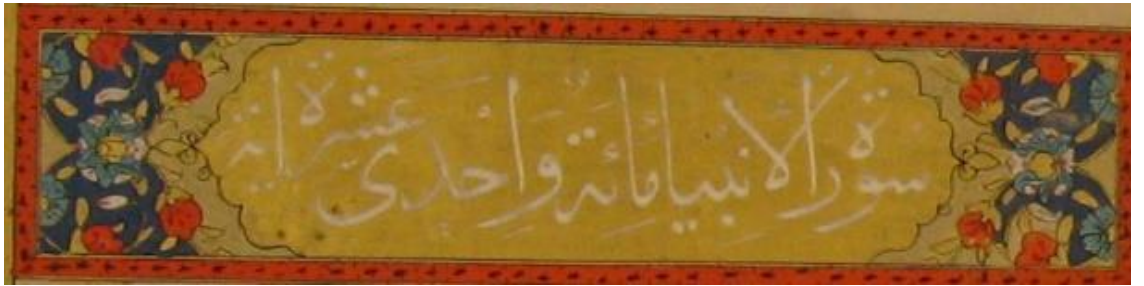 سورة الانبيا مائة واحدى عشرة اية